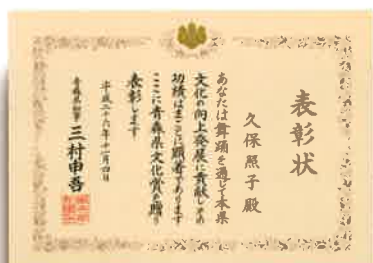 表彰状
久保照子殿
あなたは舞踊を通じて本県
文化の向上発展に貢献しその
功績はまことに顕著であります
ここに青森県文化賞を贈り
表彰します
平成二十六年十一月四日
青森県知事 三村申吾